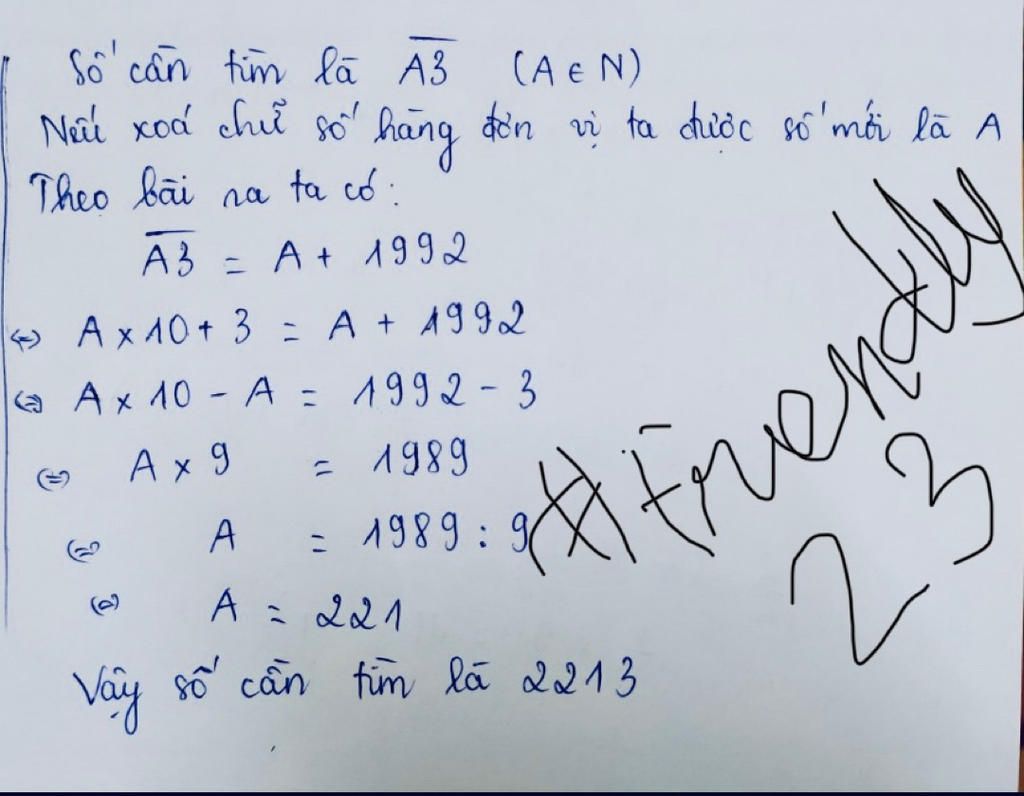 Số cần tìm là A3 (A ∈ N)
Nếu xoá chữ số hàng đơn vị ta được số mới là A
Theo bài ra ta có:
A3 = A + 1992
<=> A x 10 + 3 = A + 1992
<=> A x 10 - A = 1992 - 3
<=> A x 9 = 1989
<=> A = 1989 : 9
<=> A = 221
Vậy số cần tìm là 2213
23